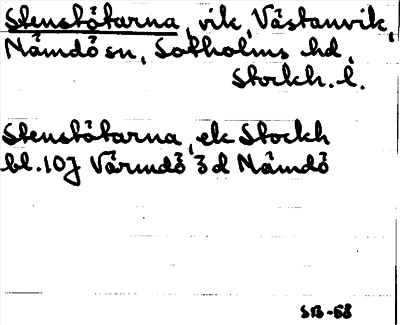 Stenstötarna, vik, Västanvik,
Nämdö sn, Sotholms hd,
Stockh. l.
Stenstötarna, ek Stockh
bl. 10J Värmdö 3d Nämdö
SB-68